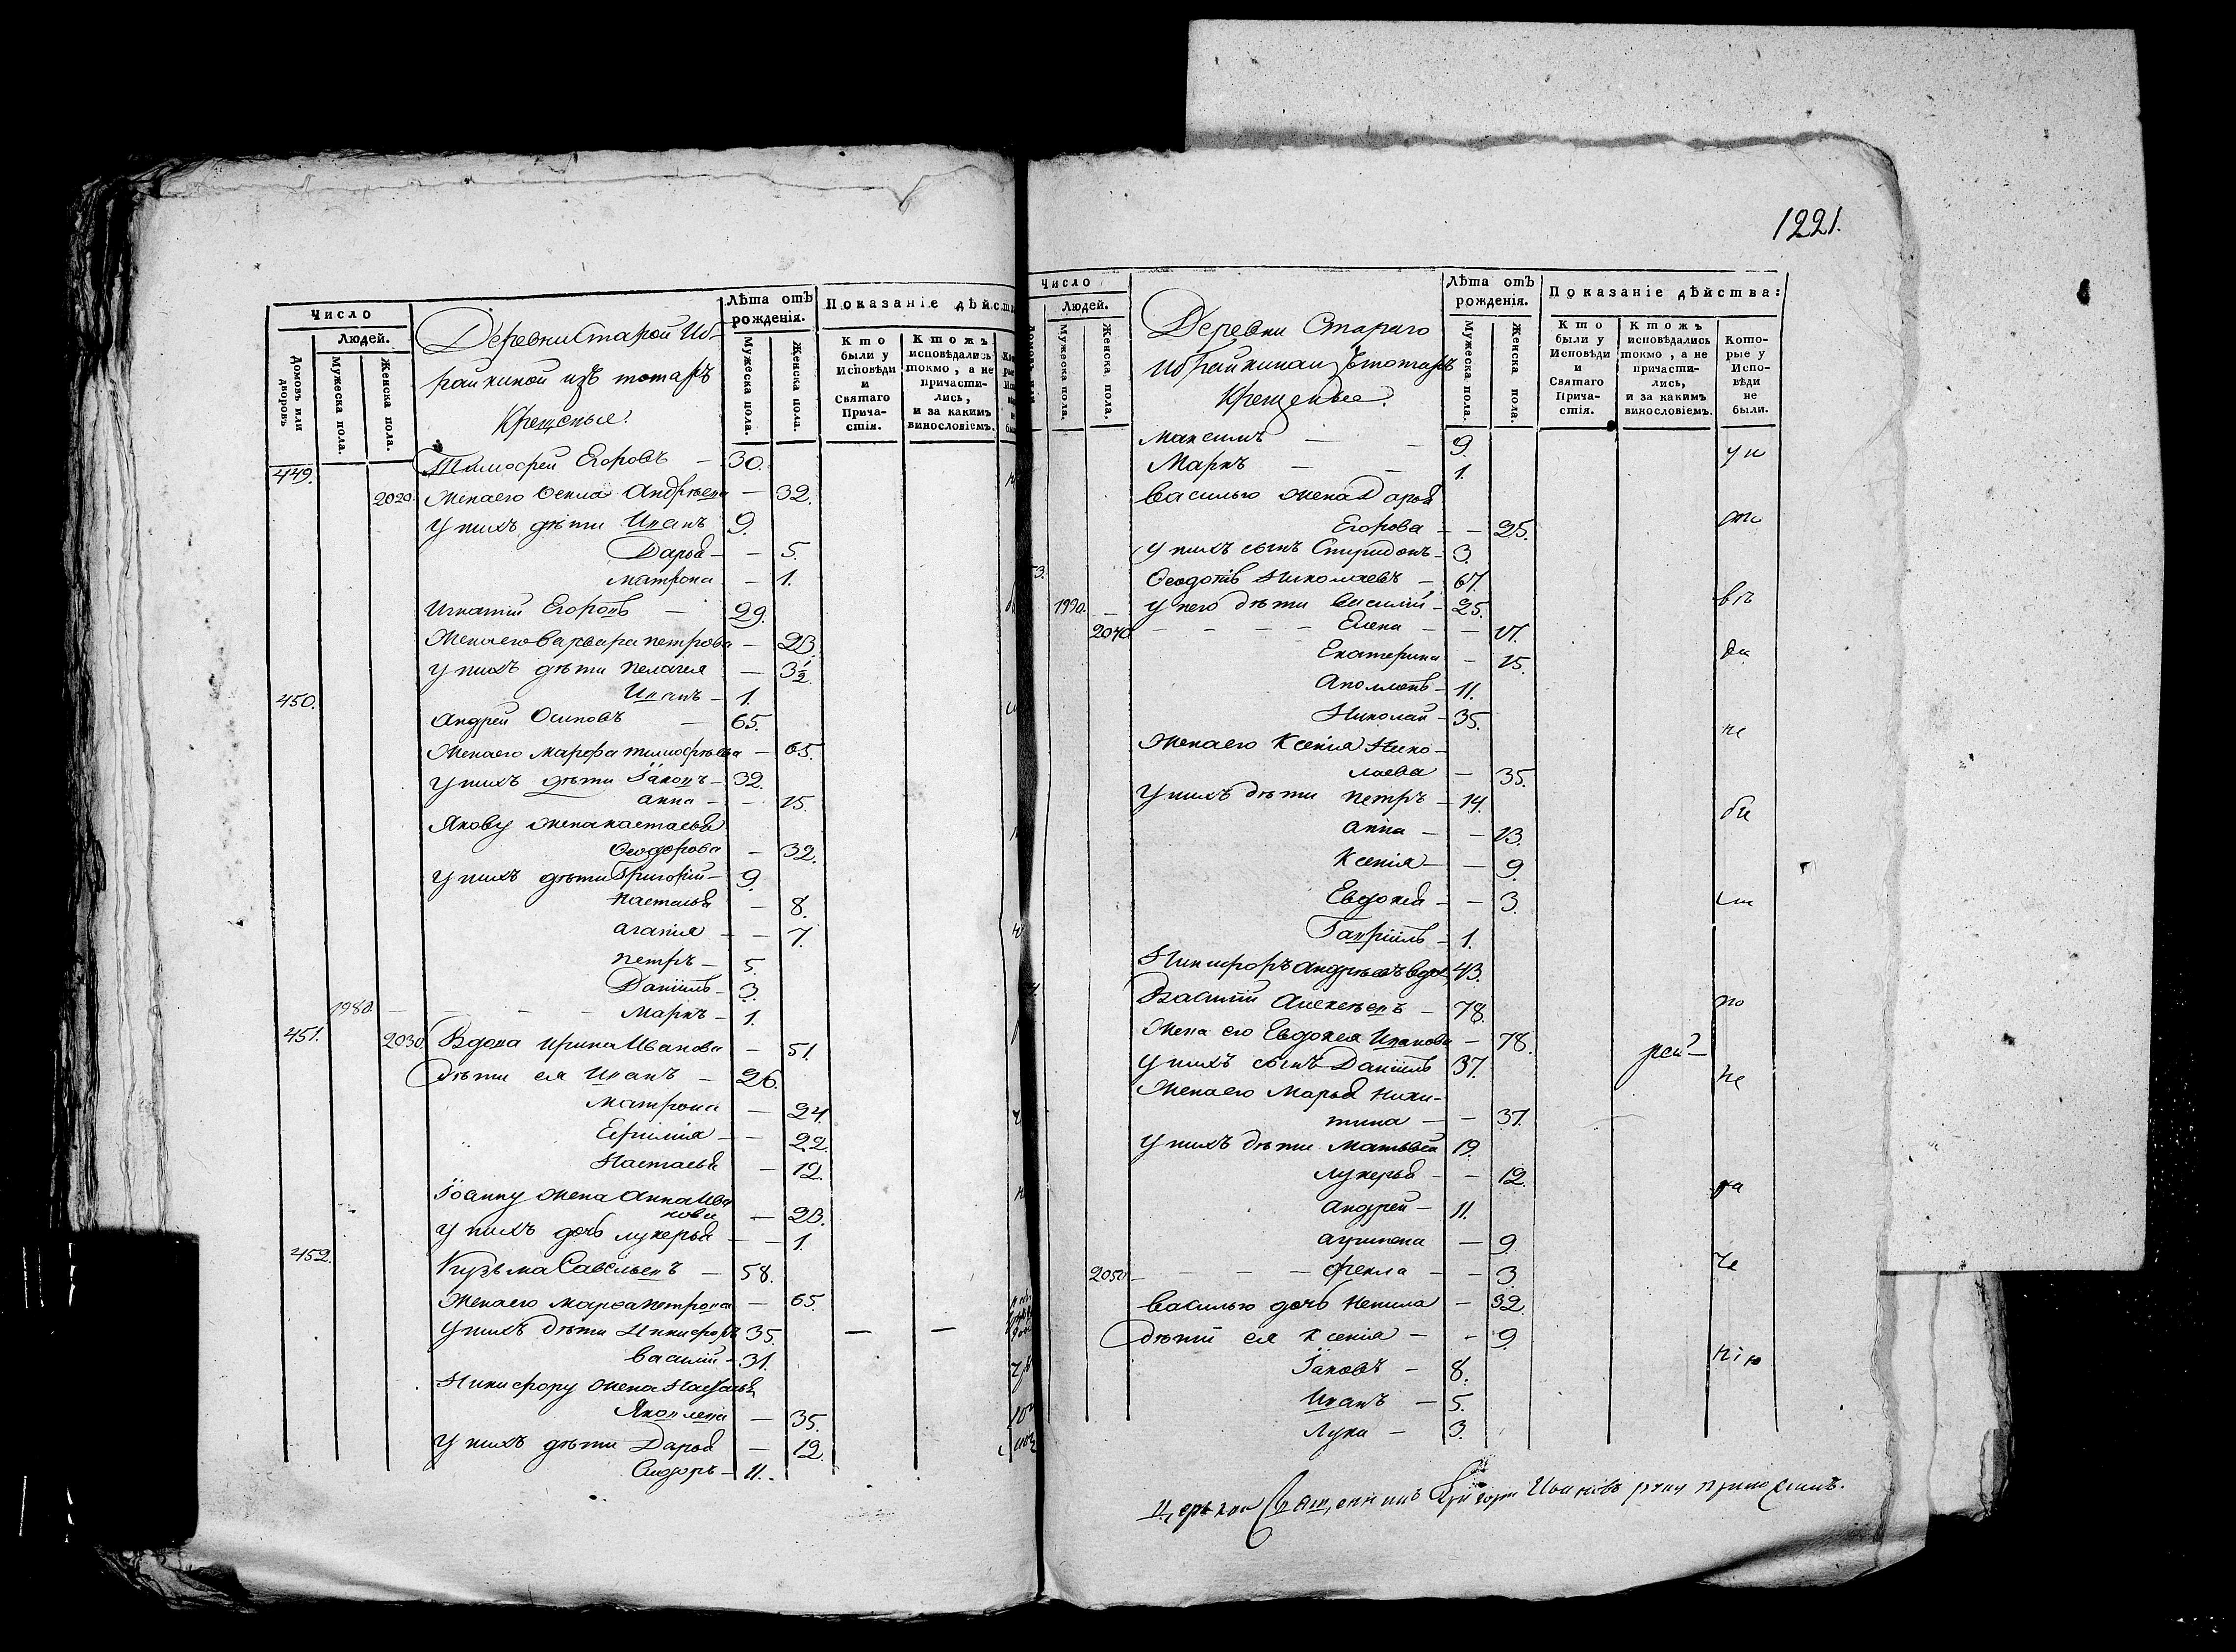 1221.
Число
Людей.
Домовъ или дворовъ
Мужеска пола.
Женска пола.
Деревни Старой Иб-
райкиной изъ тотаръ
Крещеные.
Лѣта отъ рожденія.
Мужеска пола.
Женска пола.
Показаніе дѣйств
Кто были у Исповѣди и Святаго Прича-стія.
Ктожъ исповѣдались токмо, а не причасти-лись, и за какимъ винословіемъ.
449. Тимофей Егоровъ — 30.
2020. Жена его Ѳекла Андрѣева — 32.
У нихъ дѣти Иванъ 9.
Дарья — — 5.
Матрона — 1.
Игнатій Егоровъ — 29.
Жена его Варвара Петрова — 23.
У нихъ дѣти Пелагея — 3½.
Иванъ — 1.
450. Андрей Осиповъ — 65.
Жена его Марфа Тимофѣева — 65.
У нихъ дѣти Іаковъ — 32.
Анна — — 15.
Якову жена Настасья
Ѳеодорова — 32.
У нихъ дѣти Григорій — 9.
Настасья — 8.
Агапія — — 7.
Петръ — 5.
Даніилъ — 3.
1980. — — — Маркъ — 1.
451. 2030. Вдова Ирина Иванова — 51.
Дѣти ея Иванъ — 26.
Матрона — 24.
Ефимія — — 22.
Настасья — 12.
Іоанну жена Анна Ива
нова — 23.
У нихъ дочь Лукерья — — 1.
452. Кузьма Савельевъ — 58.
Жена его Марѳа Петрова — 65.
У нихъ дѣти Никифоръ 35. — —
Василій — 31.
Никифору жена Настасья
Яковлева — 35.
У нихъ дѣти Дарья — 12.
Сидоръ — 11.
Число
Людей.
Мужеска пола.
Женска пола.
Деревни Стараго
Ибрайкина изъ тотаръ
Крещеные.
Лѣта отъ рожденія.
Мужеска пола.
Женска пола.
Показаніе дѣйства:
Кто были у Исповѣди и Святаго Прича-стія.
Ктожъ исповѣдались токмо, а не причасти-лись, и за какимъ винословіемъ.
Кото-рые у Испо-вѣди не были.
Максимъ — — 9.
Маркъ — — 1.
Василью жена Дарья
Егорова — — 25.
У нихъ сынъ Спиридонъ — 3.
Ѳеодотъ Николаевъ — 67.
1990. — У него дѣти Василій — 25.
2040. — — — — Елена — — 17.
Екатерина — 15.
Аполлонъ — 11.
Николай — 35.
Жена его Ксенія Нико-
лаева — 35.
У нихъ дѣти Петръ — 14.
Анна — — 13.
Ксенія — — 9.
Евдокея — — 3.
Гавріилъ — 1.
Никифоръ Андрѣевъ вдов 43.
Василій Алексѣевъ — 78.
Жена его Евдокея Иванова — 78.
У нихъ сынъ Даніилъ 37.
Жена его Марья Ники-
тина — — 37.
У нихъ дѣти Матвѣй 19.
Лукерья — — 12.
Андрей — 11.
Агрипена — 9.
2050. — — — Фекла — — 3.
Василью дочь Ненила — 32.
Дѣти ея Ксенія — — 9.
Іаковъ — 8.
Иванъ — 5.
Лука — 3.
Церькви Священникъ Григорій Ивановъ руку приложилъ.